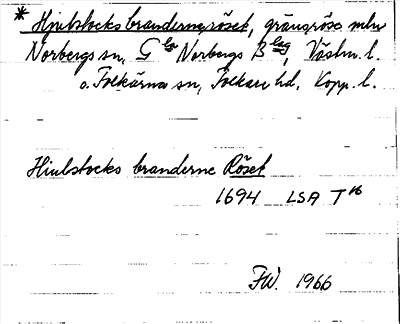 * Hiulstocks branderne röset, gränsröse mln
Norbergs sn, Gla Norbergs Blag, Västm. l.
o. Folkärna sn, Folkare hd, Kopp. l.
Hiulstocks branderne Röset
1694 LSA T16
FW. 1966